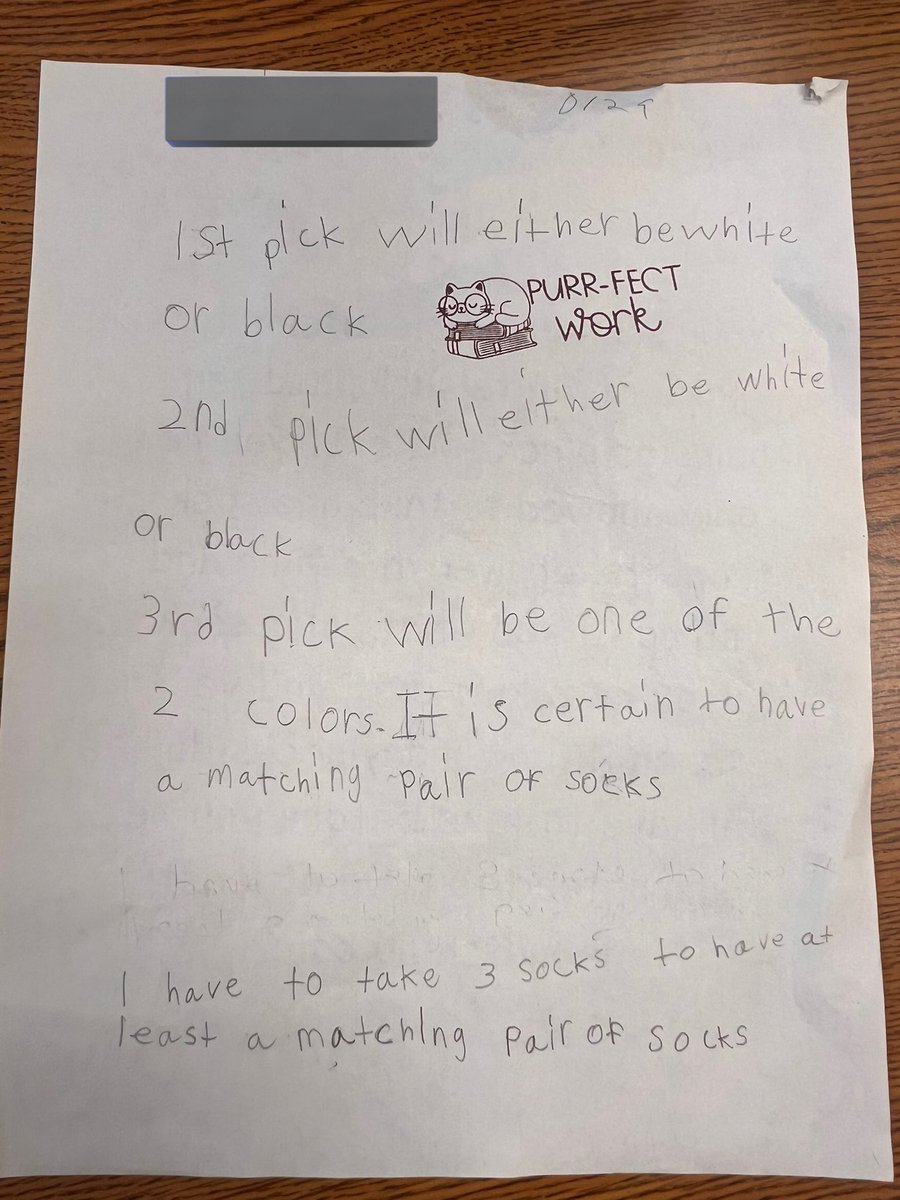 0129
1st pick will either be white
or black
PURR-FECT
work
2nd pick will either be white
or black
3rd pick will be one of the
2 colors. It is certain to have
a matching pair of socks
I have
I have to take 3 socks to have at
least a matching pair of socks